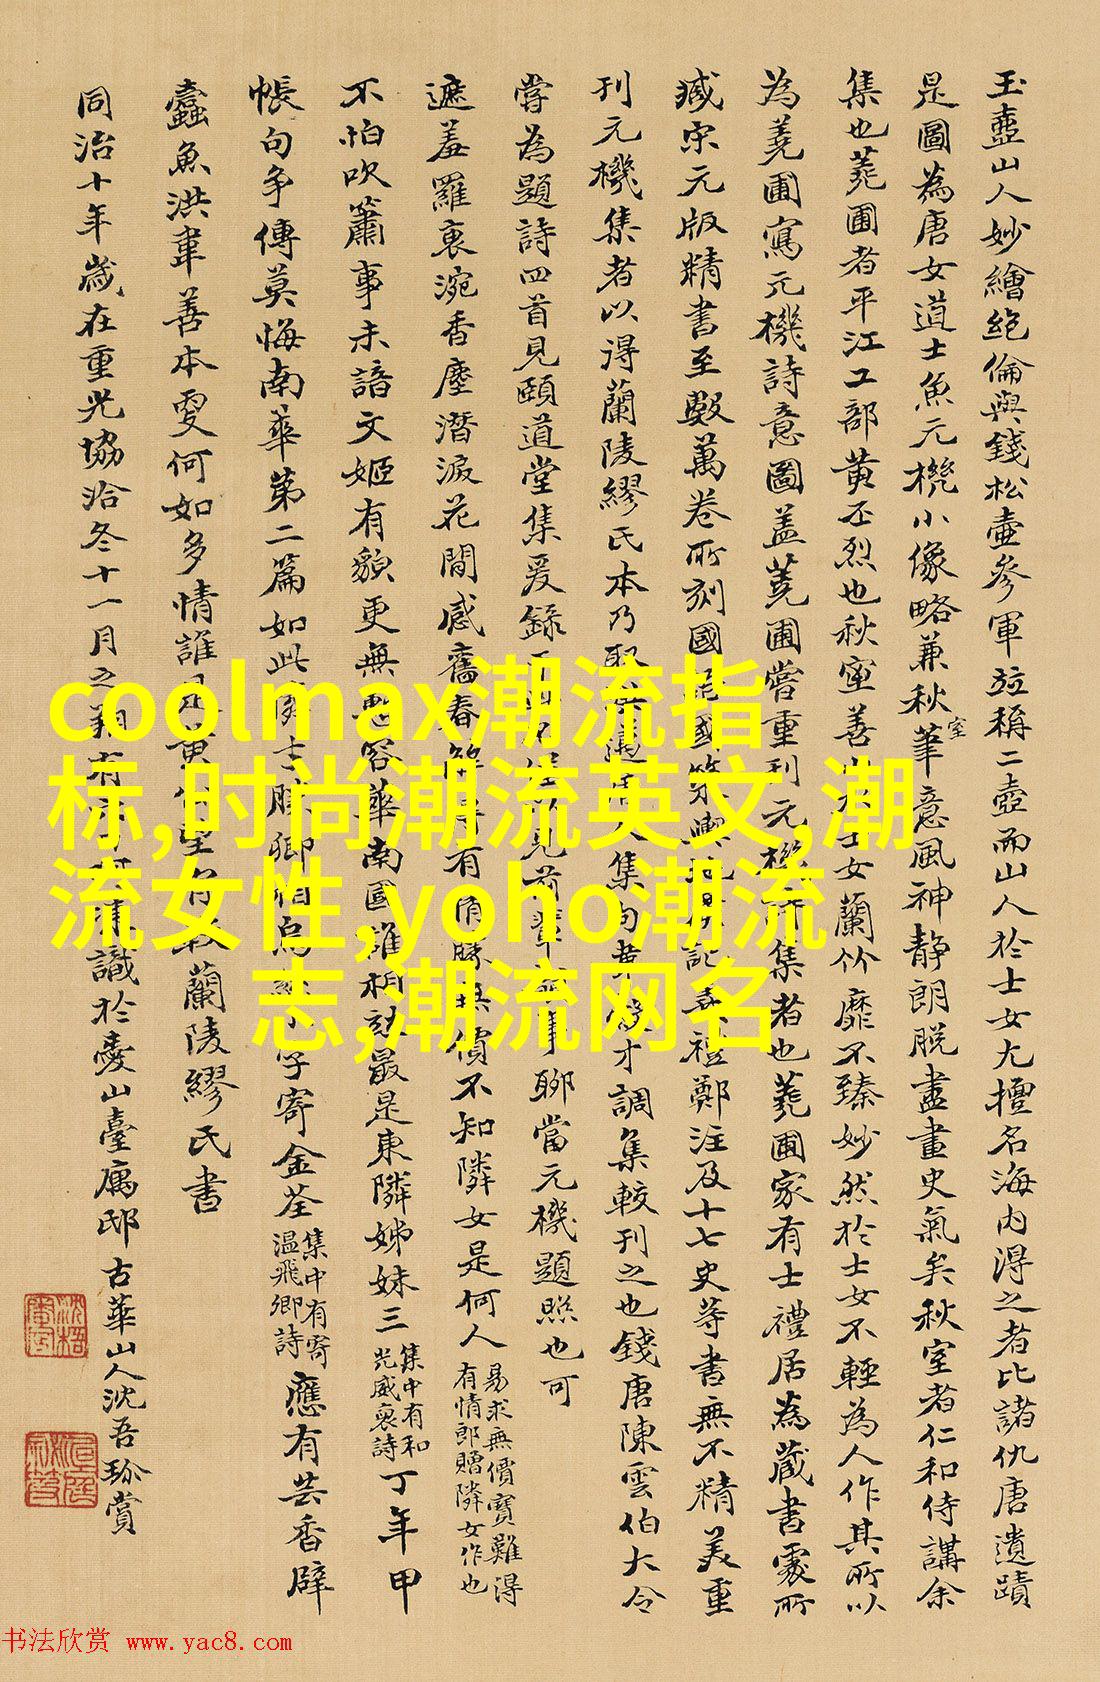 玉壺山人妙繪絕倫與錢松壺參軍竝稱二壺而山人於士女尤擅名海内得之者比諸仇唐遺蹟
是圖為唐女道士魚元機小像略兼秋室筆意風神靜朗脱盡畫史氣矣秋室者仁和侍講余
集也蕘圃者平江工部黄丕烈也秋室善士女蘭竹靡不臻妙然於士女不輕為人作其所以
為蕘圃寫元機詩意圖盖蕘圃嘗重刊元機詩集者也蕘圃家有士禮居為藏書處所
臧宋元版精書至數萬卷所刻國語國策輿地廣記儀禮鄭注及十七史等書無不精美重
刊元機集者以得蘭陵繆氏本乃人集句才調集較刊之也錢唐陳雲伯大令
嘗為題詩四首見頤道堂集爰録以見前輩事聊當元機題照也可
遮羞羅裹涴香塵潛淚花間感舊春有價不知隣女是何人
易求無價寶難得
有情郎贈隣女作也
不怕吹簫事未諳文姬有貌更無慙容華南國誰相訪最是東隣姊妹三
集中有和
光威裒詩
丁年甲
帳句争傳莫悔南華第二篇如此勝卿字寄金荃
集中有寄
温飛卿詩
應有芸香辟
蠹魚洪韋善本叟何如多情誰是黄蘭陵繆氏書
同治十年歲在重光協洽冬十一月之識於臺廎邸古華山人沈吾珍賞
coolmax潮流指
标,时尚潮流英文,潮
流女性,yoho潮流
志,潮流网名
书法欣赏 www.yac8.com